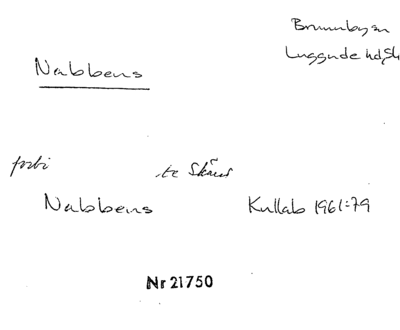 Brunnby sn
Luggude hd, Sk
Nabbens
förbi te Skäret
Nabbens Kullab 1961:79
Nr 21750